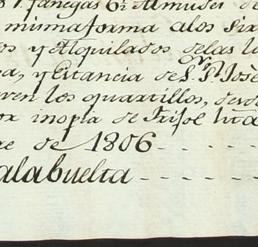 fanegas 6½ Almudes de
mismaforma alos six
os y Alquilados delas
a, y Estancia de Sr. Pr. Josè
ven los quartillos, devol
or inopia de Trisol
re de 1806
alabuelta